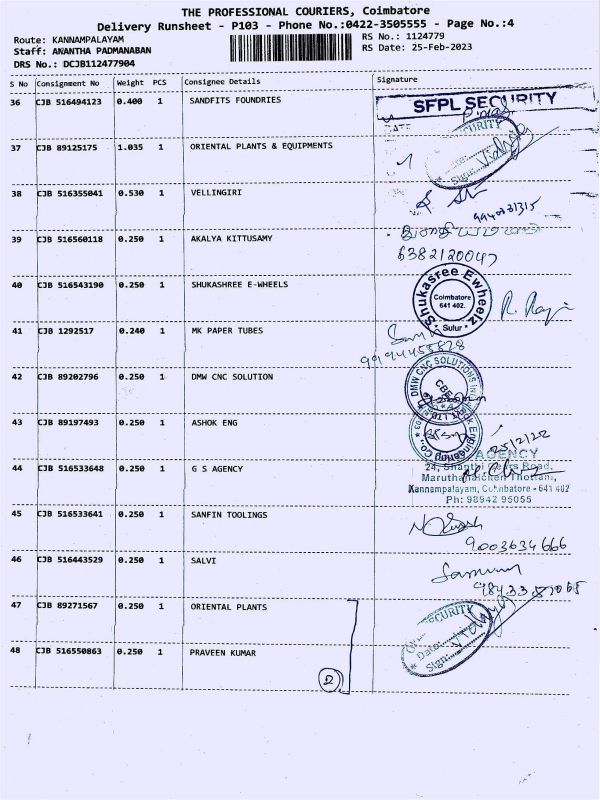 THE PROFESSIONAL COURIERS, Coimbatore
Delivery Runsheet - P103 - Phone No.:0422-3505555 - Page No.:4
Route: KANNAMPALAYAM
Staff: ANANTHA PADMANABAN
DRS No.: DCJB112477904
RS No.: 1124779
RS Date: 25-Feb-2023
S No Consignment No Weight PCS Consignee Details Signature
36 CJB 516494123 0.400 1 SANDFITS FOUNDRIES
SFPL SECURITY
DATE
37 CJB 89125175 1.035 1 ORIENTAL PLANTS & EQUIPMENTS
38 CJB 516355041 0.530 1 VELLINGIRI
39 CJB 516560118 0.250 1 AKALYA KITTUSAMY
6382120047
40 CJB 516543190 0.250 1 SHUKASHREE E-WHEELS
Shukasree Ewheelz
Coimbatore
641 402.
Sulur
41 CJB 1292517 0.240 1 MK PAPER TUBES
42 CJB 89202796 0.250 1 DMW CNC SOLUTION
DMW CNC SOLUTIONS
43 CJB 89197493 0.250 1 ASHOK ENG
44 CJB 516533648 0.250 1 G S AGENCY
AGENCY
Road,
Kannampalayam, Coimbatore - 641 402
Ph: 98942 95055
45 CJB 516533641 0.250 1 SANFIN TOOLINGS
9003634666
46 CJB 516443529 0.250 1 SALVI
47 CJB 89271567 0.250 1 ORIENTAL PLANTS
SECURITY
Date:
Sign:
48 CJB 516550863 0.250 1 PRAVEEN KUMAR
2